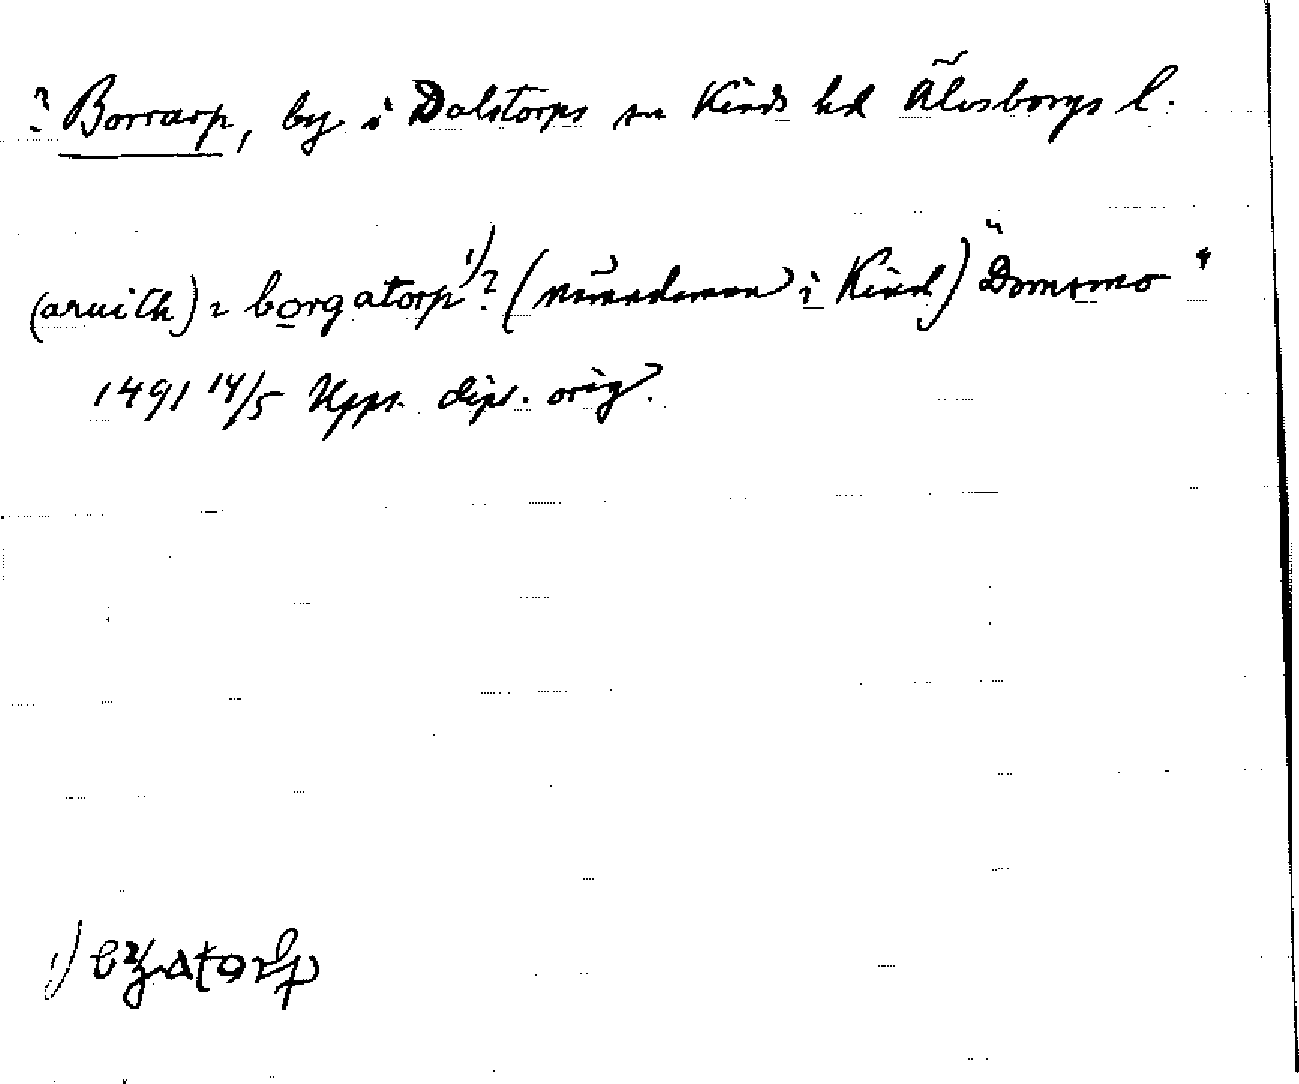 ? Borrarp, by i Dalstorps sn Kinds hd Älvsborgs l.
(aruith) i borgatorp 1)? (nämndeman i Kind) Dömmmo
1491 14/5 Upps. dipl. orig.
1)